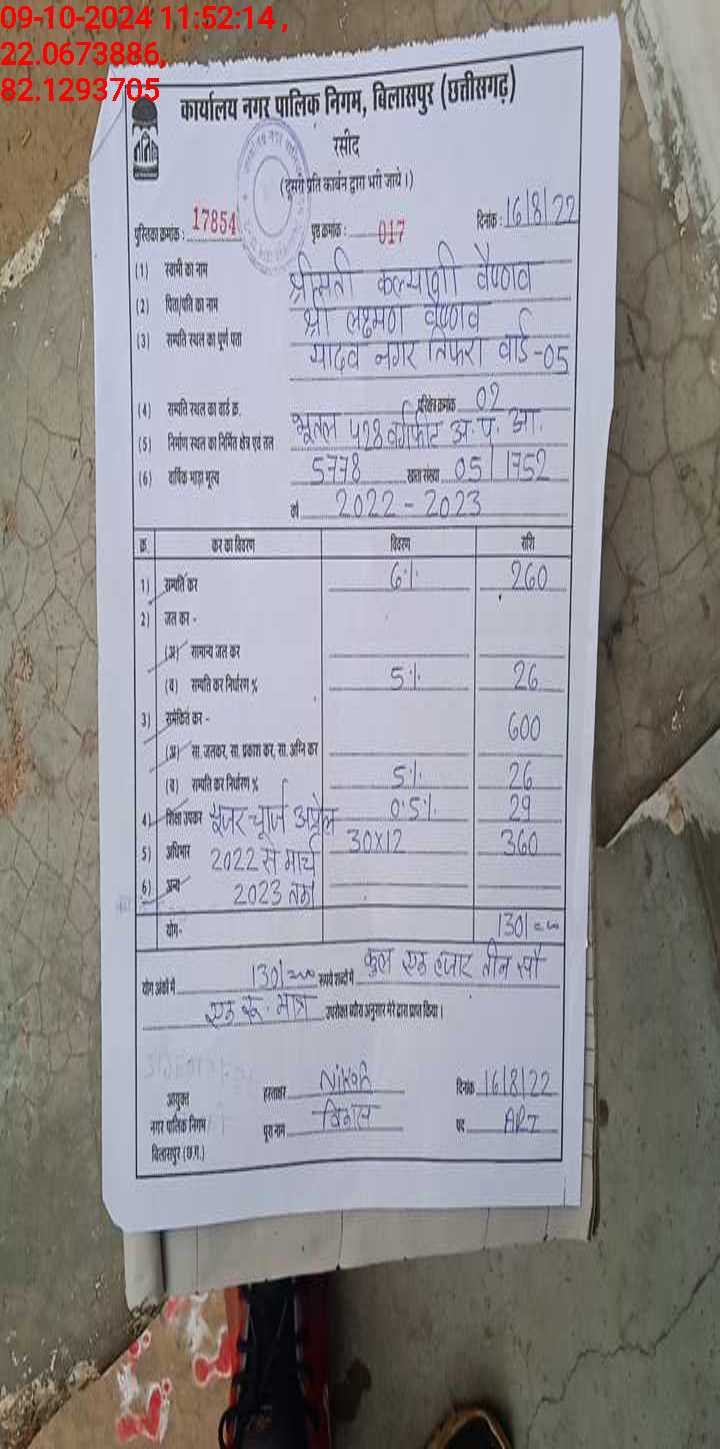 09-10-2024 11:52:14 ,
22.0673886,
82.1293705
कार्यालय नगर पालिक निगम, बिलासपुर (छत्तीसगढ़)
रसीद
(दूसरी प्रति कार्बन द्वारा भरी जाये।)
पुस्तिका क्रमांक : 17854 पृष्ठ क्रमांक : 017 दिनांक : 16/8/22
(1) स्वामी का नाम श्रीमती कल्याणी वैष्णव
(2) पिता/पति का नाम श्री लक्ष्मण वैष्णव
(3) सम्पत्ति स्थल का पूर्ण पता यादव नगर तिफरा वार्ड-05
(4) सम्पत्ति स्थल का वार्ड क्र. परिक्षेत्र क्रमांक 02
(5) निर्माण स्थल का निर्मित क्षेत्र एवं तल भूतल 428 वर्गफीट अ. प. आ.
(6) वार्षिक भाड़ा मूल्य 5778 खाता संख्या 05/1752
वर्ष 2022-2023
क्र. कर का विवरण विवरण राशि
1) सम्पत्ति कर 6% 260
2) जल कर -
(अ) सामान्य जल कर
(ब) सम्पत्ति कर निर्धारण % 5% 26
3) समेकित कर - 600
(अ) सा. जलकर, सा. प्रकाश कर, सा. अग्नि कर
(ब) सम्पत्ति कर निर्धारण % 5% 26
4) शिक्षा उपकर यूजर चार्ज अप्रैल 0.5% 29
5) अधिभार 2022 से मार्च 30X12 360
6) अन्य 2023 तक
योग- 1301=00
योग अंकों में 1301=00 रूपये शब्दों में कुल एक हजार तीन सौ
एक रू. मात्र उपरोक्त ब्योरा अनुसार मेरे द्वारा प्राप्त किया।
आयुक्त हस्ताक्षर दिनांक 16/8/22
नगर पालिक निगम पूरा नाम पद ARI
बिलासपुर (छ.ग.)